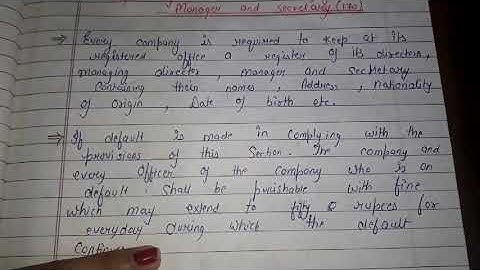 Manager and secretary (170)
⇒ Every company is required to keep at its
registered office a register of its directors,
managing director, manager and secretary
Containing their names, Address, nationality
of Origin, Date of birth etc.
⇒ If default is made in Complying with the
provisions of this Section. The company and
every Officer of the Company who is on
default. Shall be punishable with fine
which may extend to fifty rupees for
everyday During which the default